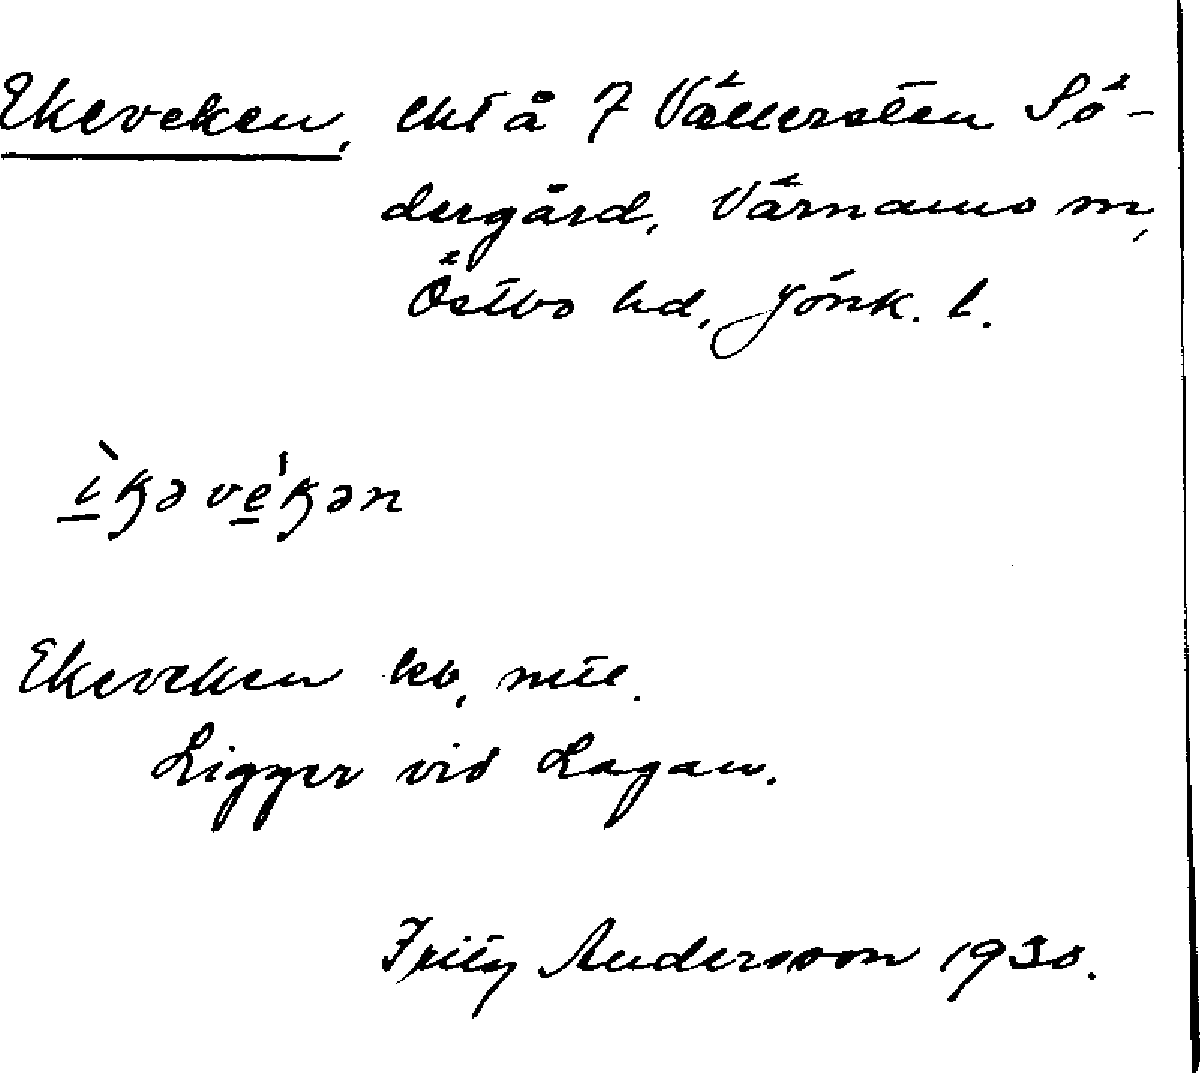 Ekeveken, å 7 Vällersten Sö-
dergård, Värnamo sn,
Östbo hd, Jönk. l.
Ekeveken
Ligger vid Lagan.
Fritz Andersson 1930.